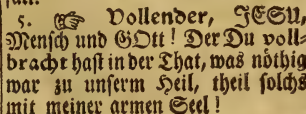 5. ☞ Vollender, JESU,
Mensch und GOtt! Der Du voll-
bracht hast in der That, was nöthig
war zu unserm Heil, theil solchs
mit meiner armen Seel!